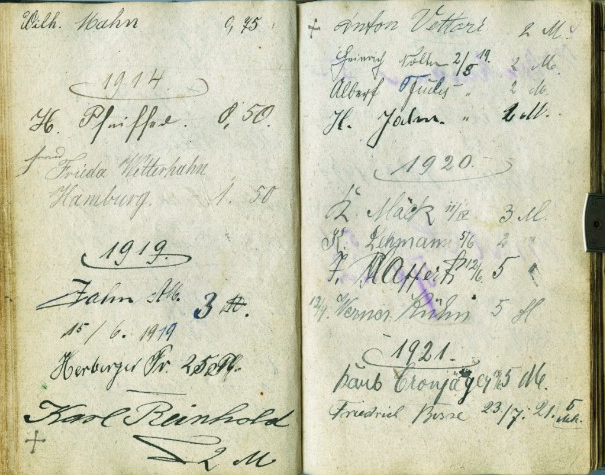 Wilh. Mahn 0,75
1914
H. Pfeiffer. 0,50.
Frieda Witterhahn
Hamburg. 1.50
1919.
Jahn M. 3 M.
15/6. 1919
Herberger Fr. 25 M.
Karl Reinhold
2 M
Anton Vettori 2 M.
Heinrich 2/5 19. 2 M.
Albert Fuchs " 2 M.
H. Jahn. " 2 M.
1920.
K. Mäck 3 M.
K. Lehmann 5/6 2 "
J. 12/6 5 "
Werner Kühn 5 M
1921.
Hans Cronjäger 25 M.
Friedrich Bosse 23/7. 21. 5 Mk.